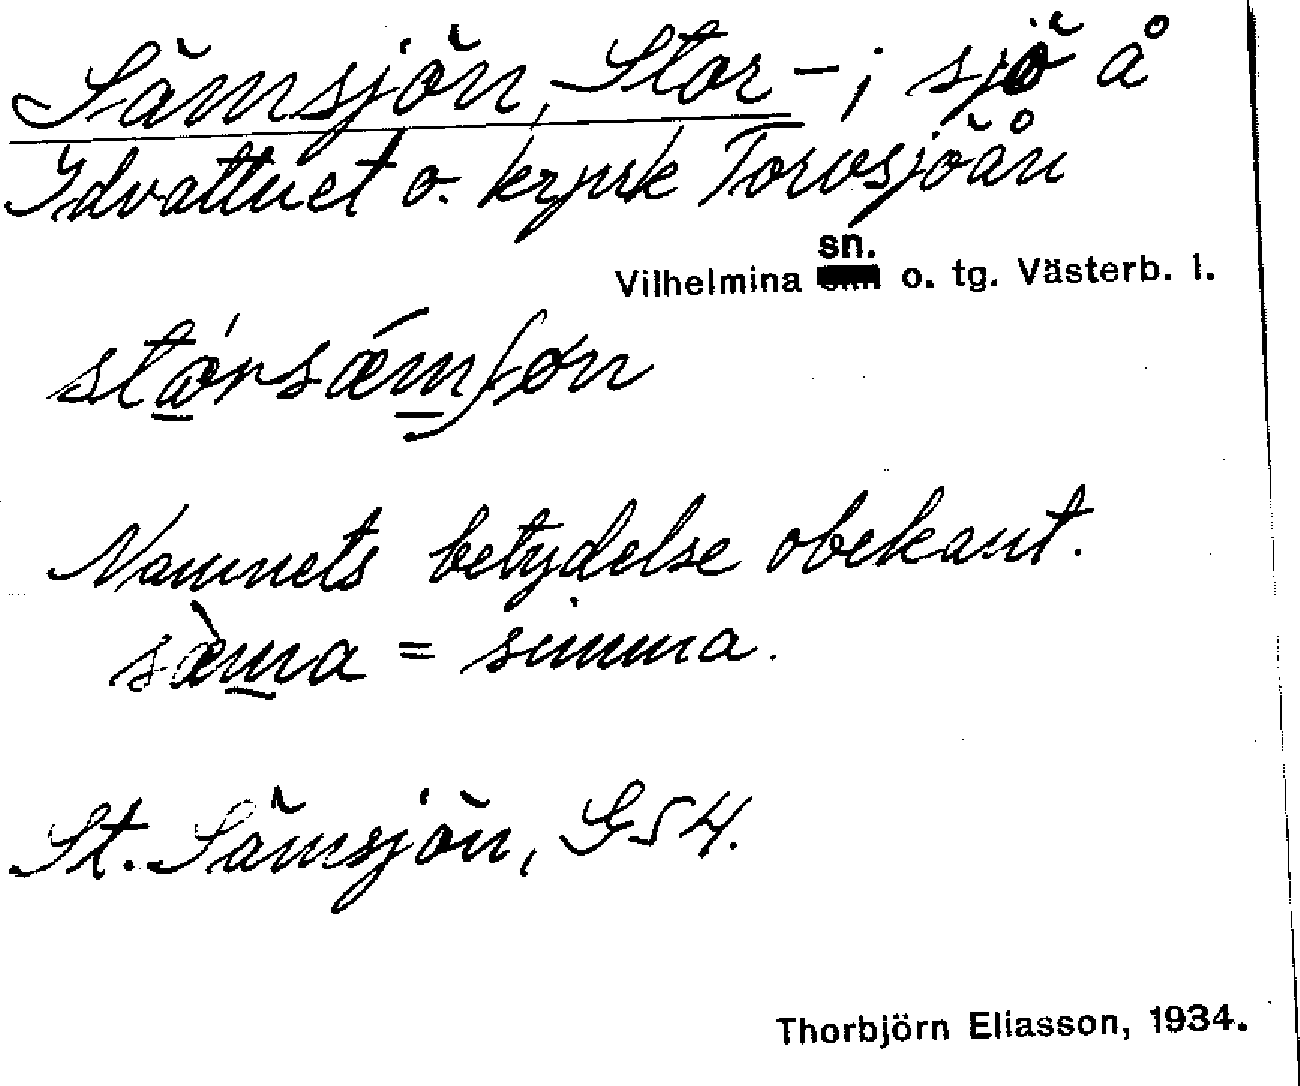 Sämsjön, Stor-; sjö å
Idvattnet o. krjsk Torvsjöån
sn.
Vilhelmina o. tg. Västerb. l.
stórsǽmʃøn
Namnets betydelse obekant.
sæ̀ma = simma.
St. Sämsjön, GS4.
Thorbjörn Eliasson, 1934.